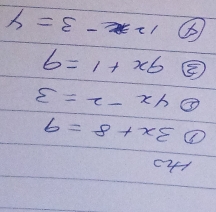 Hw
① 3x + 8 = 9
② 4x - 2 = 3
③ 9x + 1 = 9
④ 12x - 3 = 4